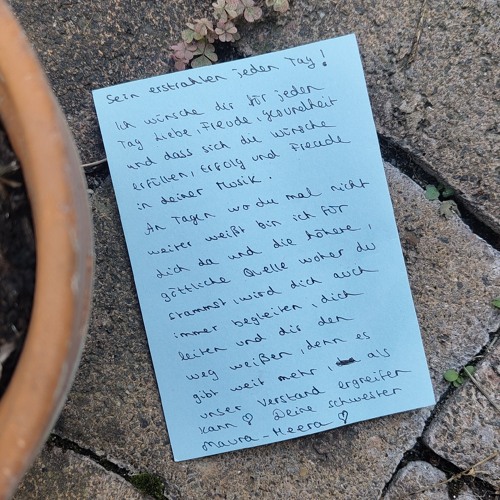 Sein erstrahlen jeden Tag!
Ich wünsche dir für jeden
Tag Liebe, Freude, Gesundheit
und dass sich die wünsche
erfüllen, Erfolg und Freude
in deiner Musik.
An Tagen wo du mal nicht
weiter weißt bin ich für
dich da und die höhere,
göttliche Quelle woher du
stammst, wird dich auch
immer begleiten, dich
leiten und dir den
weg weißen, denn es
gibt weit mehr, als
unser Verstand ergreifen
kann ♡ Deine schwester
Maura-Meera ♡